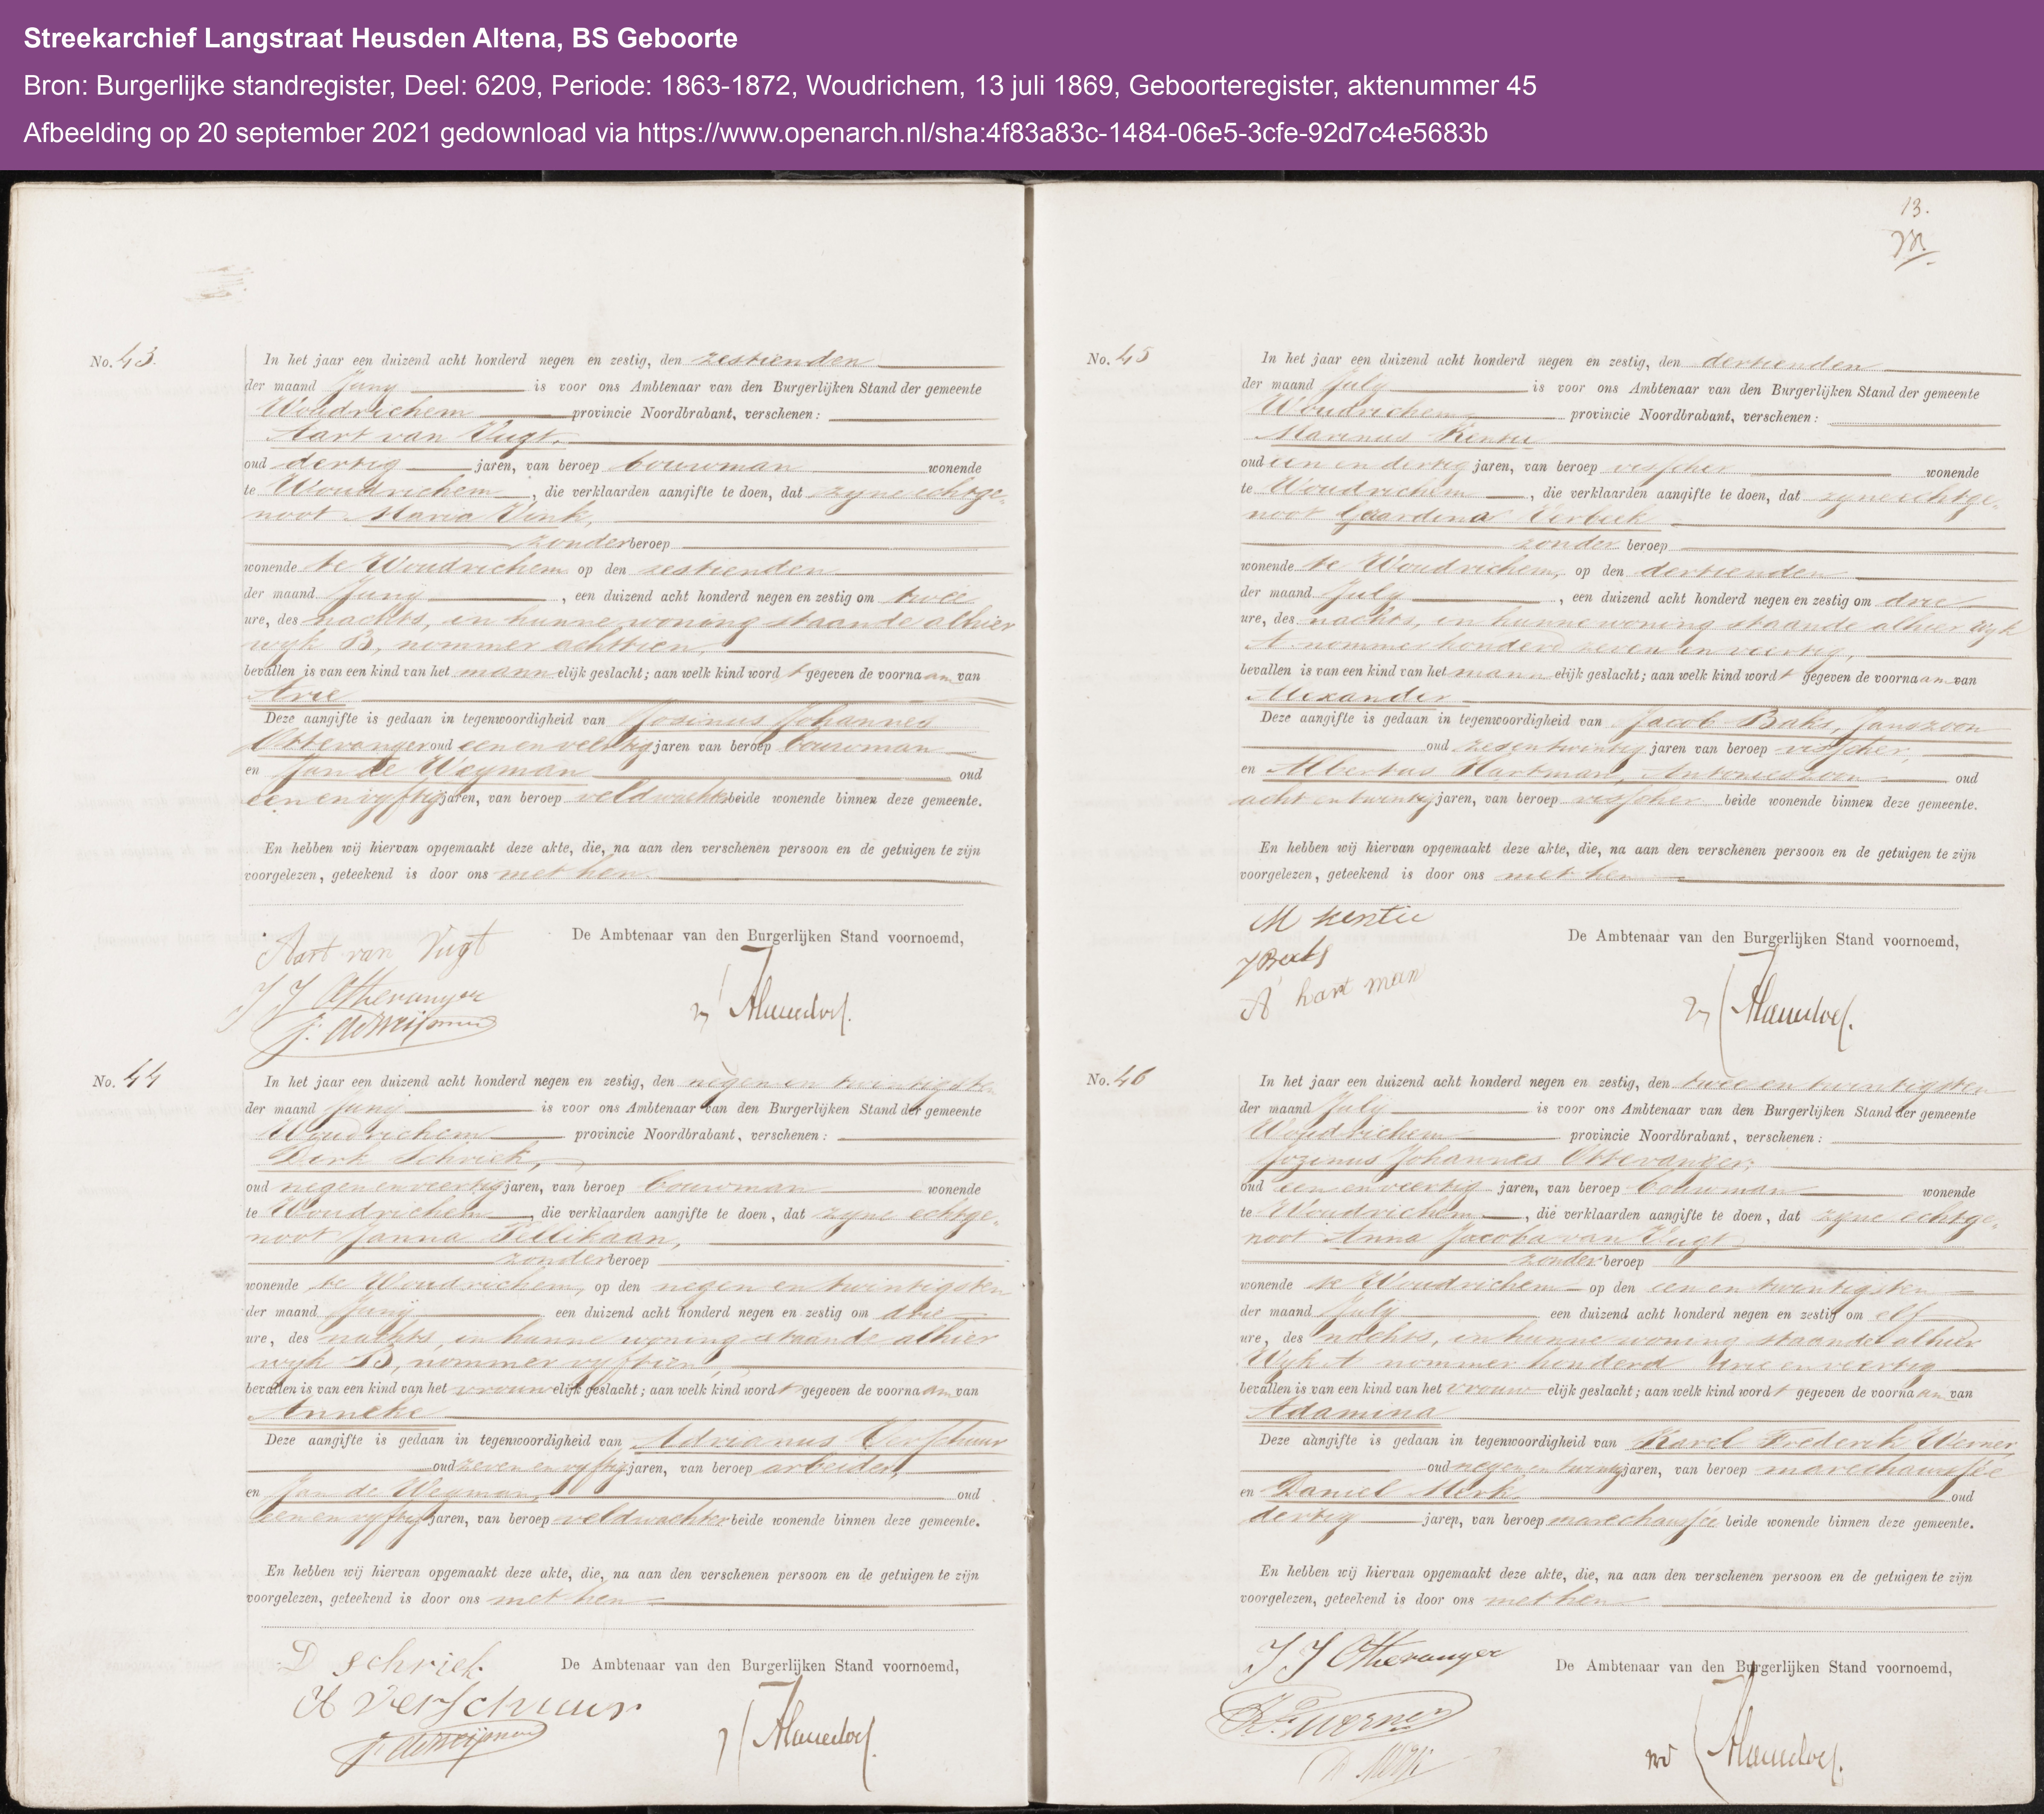 Streekarchief Langstraat Heusden Altena, BS Geboorte
Bron: Burgerlijke standregister, Deel: 6209, Periode: 1863-1872, Woudrichem, 13 juli 1869, Geboorteregister, aktenummer 45
Afbeelding op 20 september 2021 gedownload via https://www.openarch.nl/sha:4f83a83c-1484-06e5-3cfe-92d7c4e5683b
No. 43.
In het jaar een duizend acht honderd negen en zestig, den zestienden
der maand Juny is voor ons Ambtenaar van den Burgerlijken Stand der gemeente
Woudrichem provincie Noordbrabant, verschenen:
Aart van Vugt,
oud dertig jaren, van beroep bouwman wonende
te Woudrichem, die verklaarden aangifte te doen, dat zyne echtge-
noot Maria Vink,
zonder beroep
wonende te Woudrichem op den zestienden
der maand Juny, een duizend acht honderd negen en zestig om twee
ure, des nachts, in hunne woning staande alhier
wyk B, nommer achttien,
bevallen is van een kind van het mannelijk geslacht; aan welk kind wordt gegeven de voornaam van
Arie
Deze aangifte is gedaan in tegenwoordigheid van Jozinus Johannes
Ottevanger oud een en veertig jaren van beroep bouwman
en Jan de Weyman oud
een en vyftig jaren, van beroep veldwachter beide wonende binnen deze gemeente.
En hebben wij hiervan opgemaakt deze akte, die, na aan den verschenen persoon en de getuigen te zijn
voorgelezen, geteekend is door ons met hen.
De Ambtenaar van den Burgerlijken Stand voornoemd,
Aart van Vugt
J J Ottevanger
J. de Weijman
No. 44
In het jaar een duizend acht honderd negen en zestig, den negen en twintigsten
der maand Juny is voor ons Ambtenaar van den Burgerlijken Stand der gemeente
Woudrichem provincie Noordbrabant, verschenen:
Dirk Schriek,
oud negen en veertig jaren, van beroep bouwman wonende
te Woudrichem, die verklaarden aangifte te doen, dat zyne echtge-
noot Janna Pellikaan,
zonder beroep
wonende te Woudrichem, op den negen en twintigsten
der maand Juny een duizend acht honderd negen en zestig om drie
ure, des nachts, in hunne woning staande alhier
wyk B, nommer vyftien,
bevallen is van een kind van het vrouwelijk geslacht; aan welk kind wordt gegeven de voornaam van
Anneke
Deze aangifte is gedaan in tegenwoordigheid van Adrianus Verschuur
oud zeven en vyftig jaren, van beroep arbeider,
en Jan de Weyman, oud
een en vyftig jaren, van beroep veldwachter beide wonende binnen deze gemeente.
En hebben wij hiervan opgemaakt deze akte, die, na aan den verschenen persoon en de getuigen te zijn
voorgelezen, geteekend is door ons met hen
De Ambtenaar van den Burgerlijken Stand voornoemd,
D Schriek
A verschuur
J. de Weijman
13.
No. 45
In het jaar een duizend acht honderd negen en zestig, den dertienden
der maand July is voor ons Ambtenaar van den Burgerlijken Stand der gemeente
Woudrichem provincie Noordbrabant, verschenen:
Marinus Kentie
oud een en dertig jaren, van beroep visscher wonende
te Woudrichem, die verklaarden aangifte te doen, dat zyne echtge-
noot Gerardina Verbeek
zonder beroep
wonende te Woudrichem, op den dertienden
der maand July, een duizend acht honderd negen en zestig om drie
ure, des nachts, in hunne woning staande alhier Wyk
A nommer honderd zeven en veertig,
bevallen is van een kind van het mannelijk geslacht; aan welk kind wordt gegeven de voornaam van
Alexander
Deze aangifte is gedaan in tegenwoordigheid van Jacob Baks, Janszoon
oud zes en twintig jaren van beroep visscher,
en Albertus Hartman, Antonieszoon oud
acht en twintig jaren, van beroep visscher beide wonende binnen deze gemeente.
En hebben wij hiervan opgemaakt deze akte, die, na aan den verschenen persoon en de getuigen te zijn
voorgelezen, geteekend is door ons met hen
De Ambtenaar van den Burgerlijken Stand voornoemd,
M kentie
J Baks
A hart man
No. 46
In het jaar een duizend acht honderd negen en zestig, den twee en twintigsten
der maand July is voor ons Ambtenaar van den Burgerlijken Stand der gemeente
Woudrichem provincie Noordbrabant, verschenen:
Jozinus Johannes Ottevanger,
oud een en veertig jaren, van beroep bouwman wonende
te Woudrichem, die verklaarden aangifte te doen, dat zyne echtge-
noot Anna Jacoba van Vugt
zonder beroep
wonende te Woudrichem op den een en twintigsten
der maand July een duizend acht honderd negen en zestig om elf
ure, des nachts, in hunne woning staande alhier
Wyk A nommer honderd drie en veertig
bevallen is van een kind van het vrouwelijk geslacht; aan welk kind wordt gegeven de voornaam van
Adamina
Deze aangifte is gedaan in tegenwoordigheid van Karel Frederik Werner,
oud negen en twintig jaren, van beroep marechaussée
en Daniel Merk, oud
dertig jaren, van beroep marechaussée beide wonende binnen deze gemeente.
En hebben wij hiervan opgemaakt deze akte, die, na aan den verschenen persoon en de getuigen te zijn
voorgelezen, geteekend is door ons met hen
De Ambtenaar van den Burgerlijken Stand voornoemd,
J J Ottevanger
K. F. Werner
D Merk